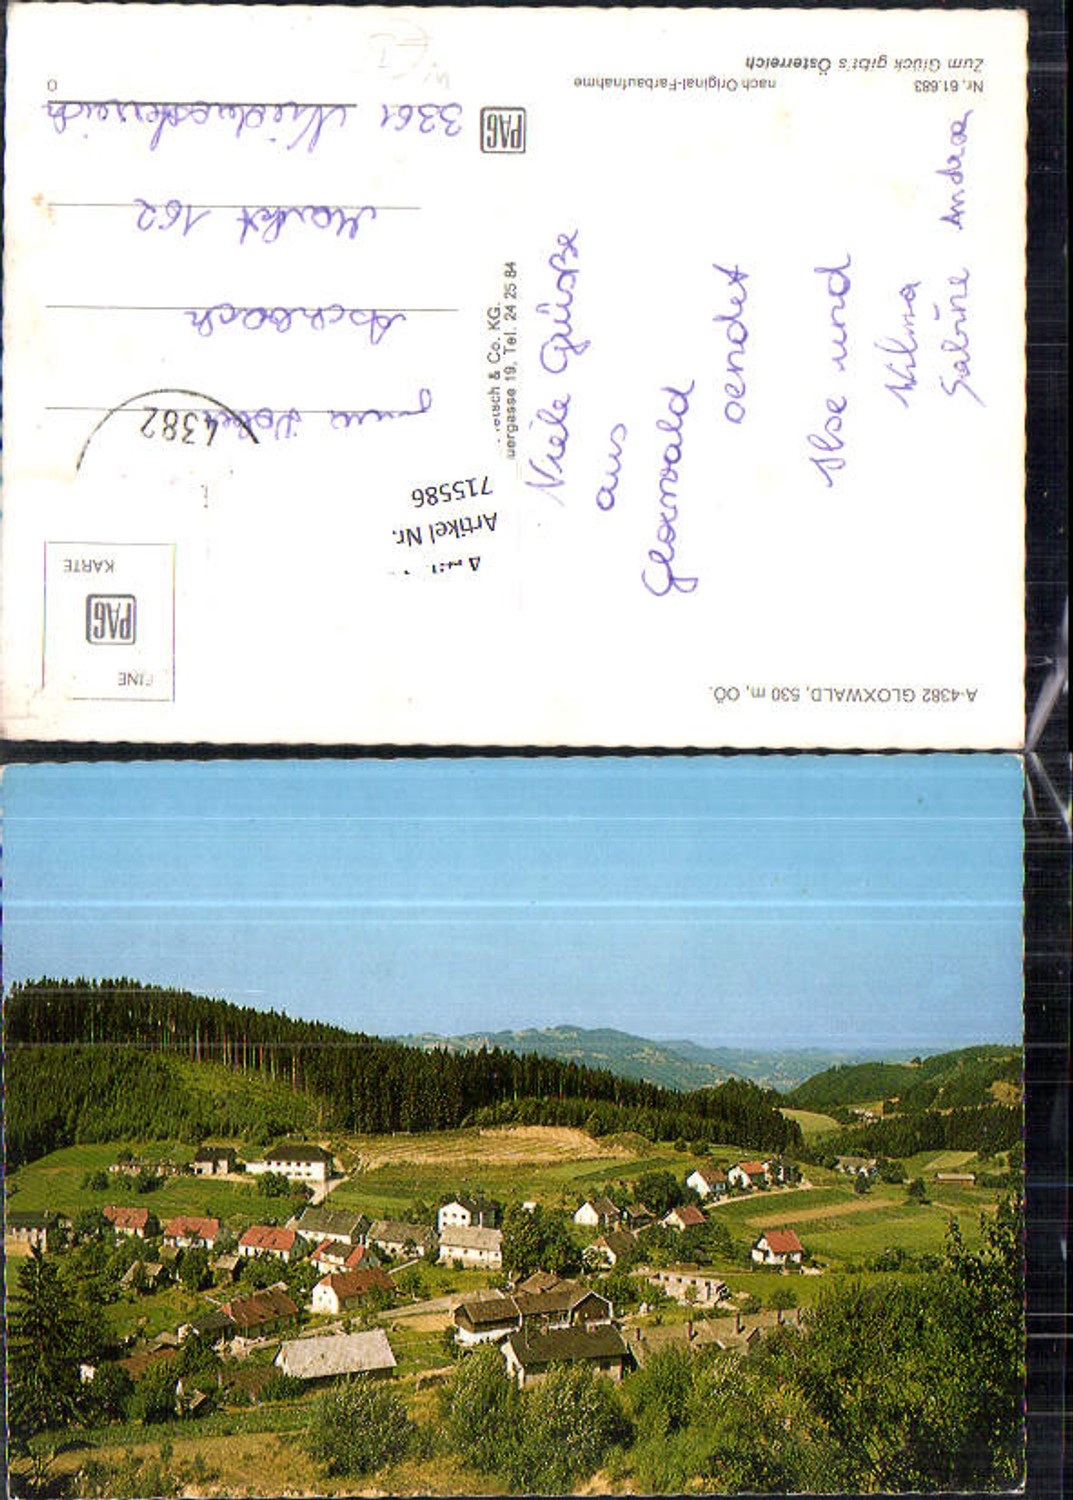 A-4382 GLOXWALD, 530 m, OÖ.
Viele Grüße
aus
Gloxwald
sendet
Ilse und
Wilma
Sabine Andrea
Nr. 61.683 nach Original-Farbaufnahme
Zum Glück gibt's Österreich
& Co. KG.
19, Tel. 24 25 84
EINE
PAG
KARTE
Artikel Nr.
715586
4382
Aschbach
Markt 162
PAG
3361 Niederösterreich